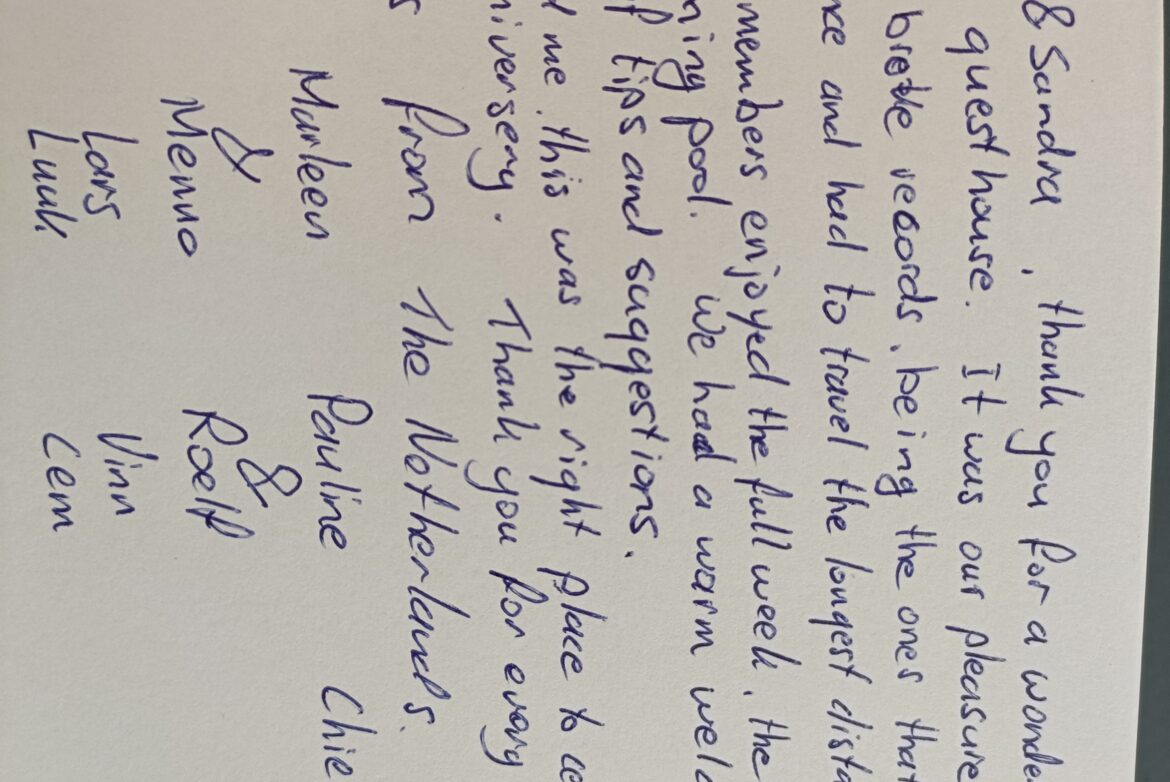 & Sandra, thank you for a wonde
guesthouse. It was our pleasure
broke records, being the ones that
nce and had to travel the longest dista
members enjoyed the full week, the
ming pool. We had a warm welc
of tips and suggestions.
d me, this was the right place to ce
niversery. Thank you for every
s from The Netherlands.
Marleen Pauline Chie
& &
Menno Roelf
Lars Vinn
Luuk Cem